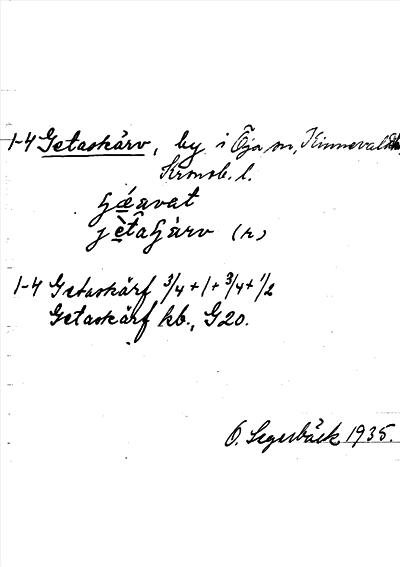 1-4 Getaskärv, by i Öja sn, Kinnevalds
Kronob. l.
jètaʃàrv (r)
1-4 Getaskärf 3/4 + 1 + 3/4 + 1/2
Getaskärf kb., G20.
O. Segerbäck 1935.